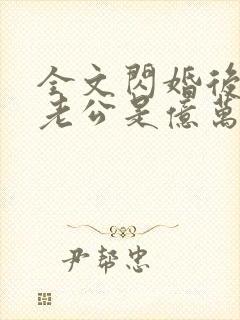 全文閃婚後
老公是億萬
尹幫忠